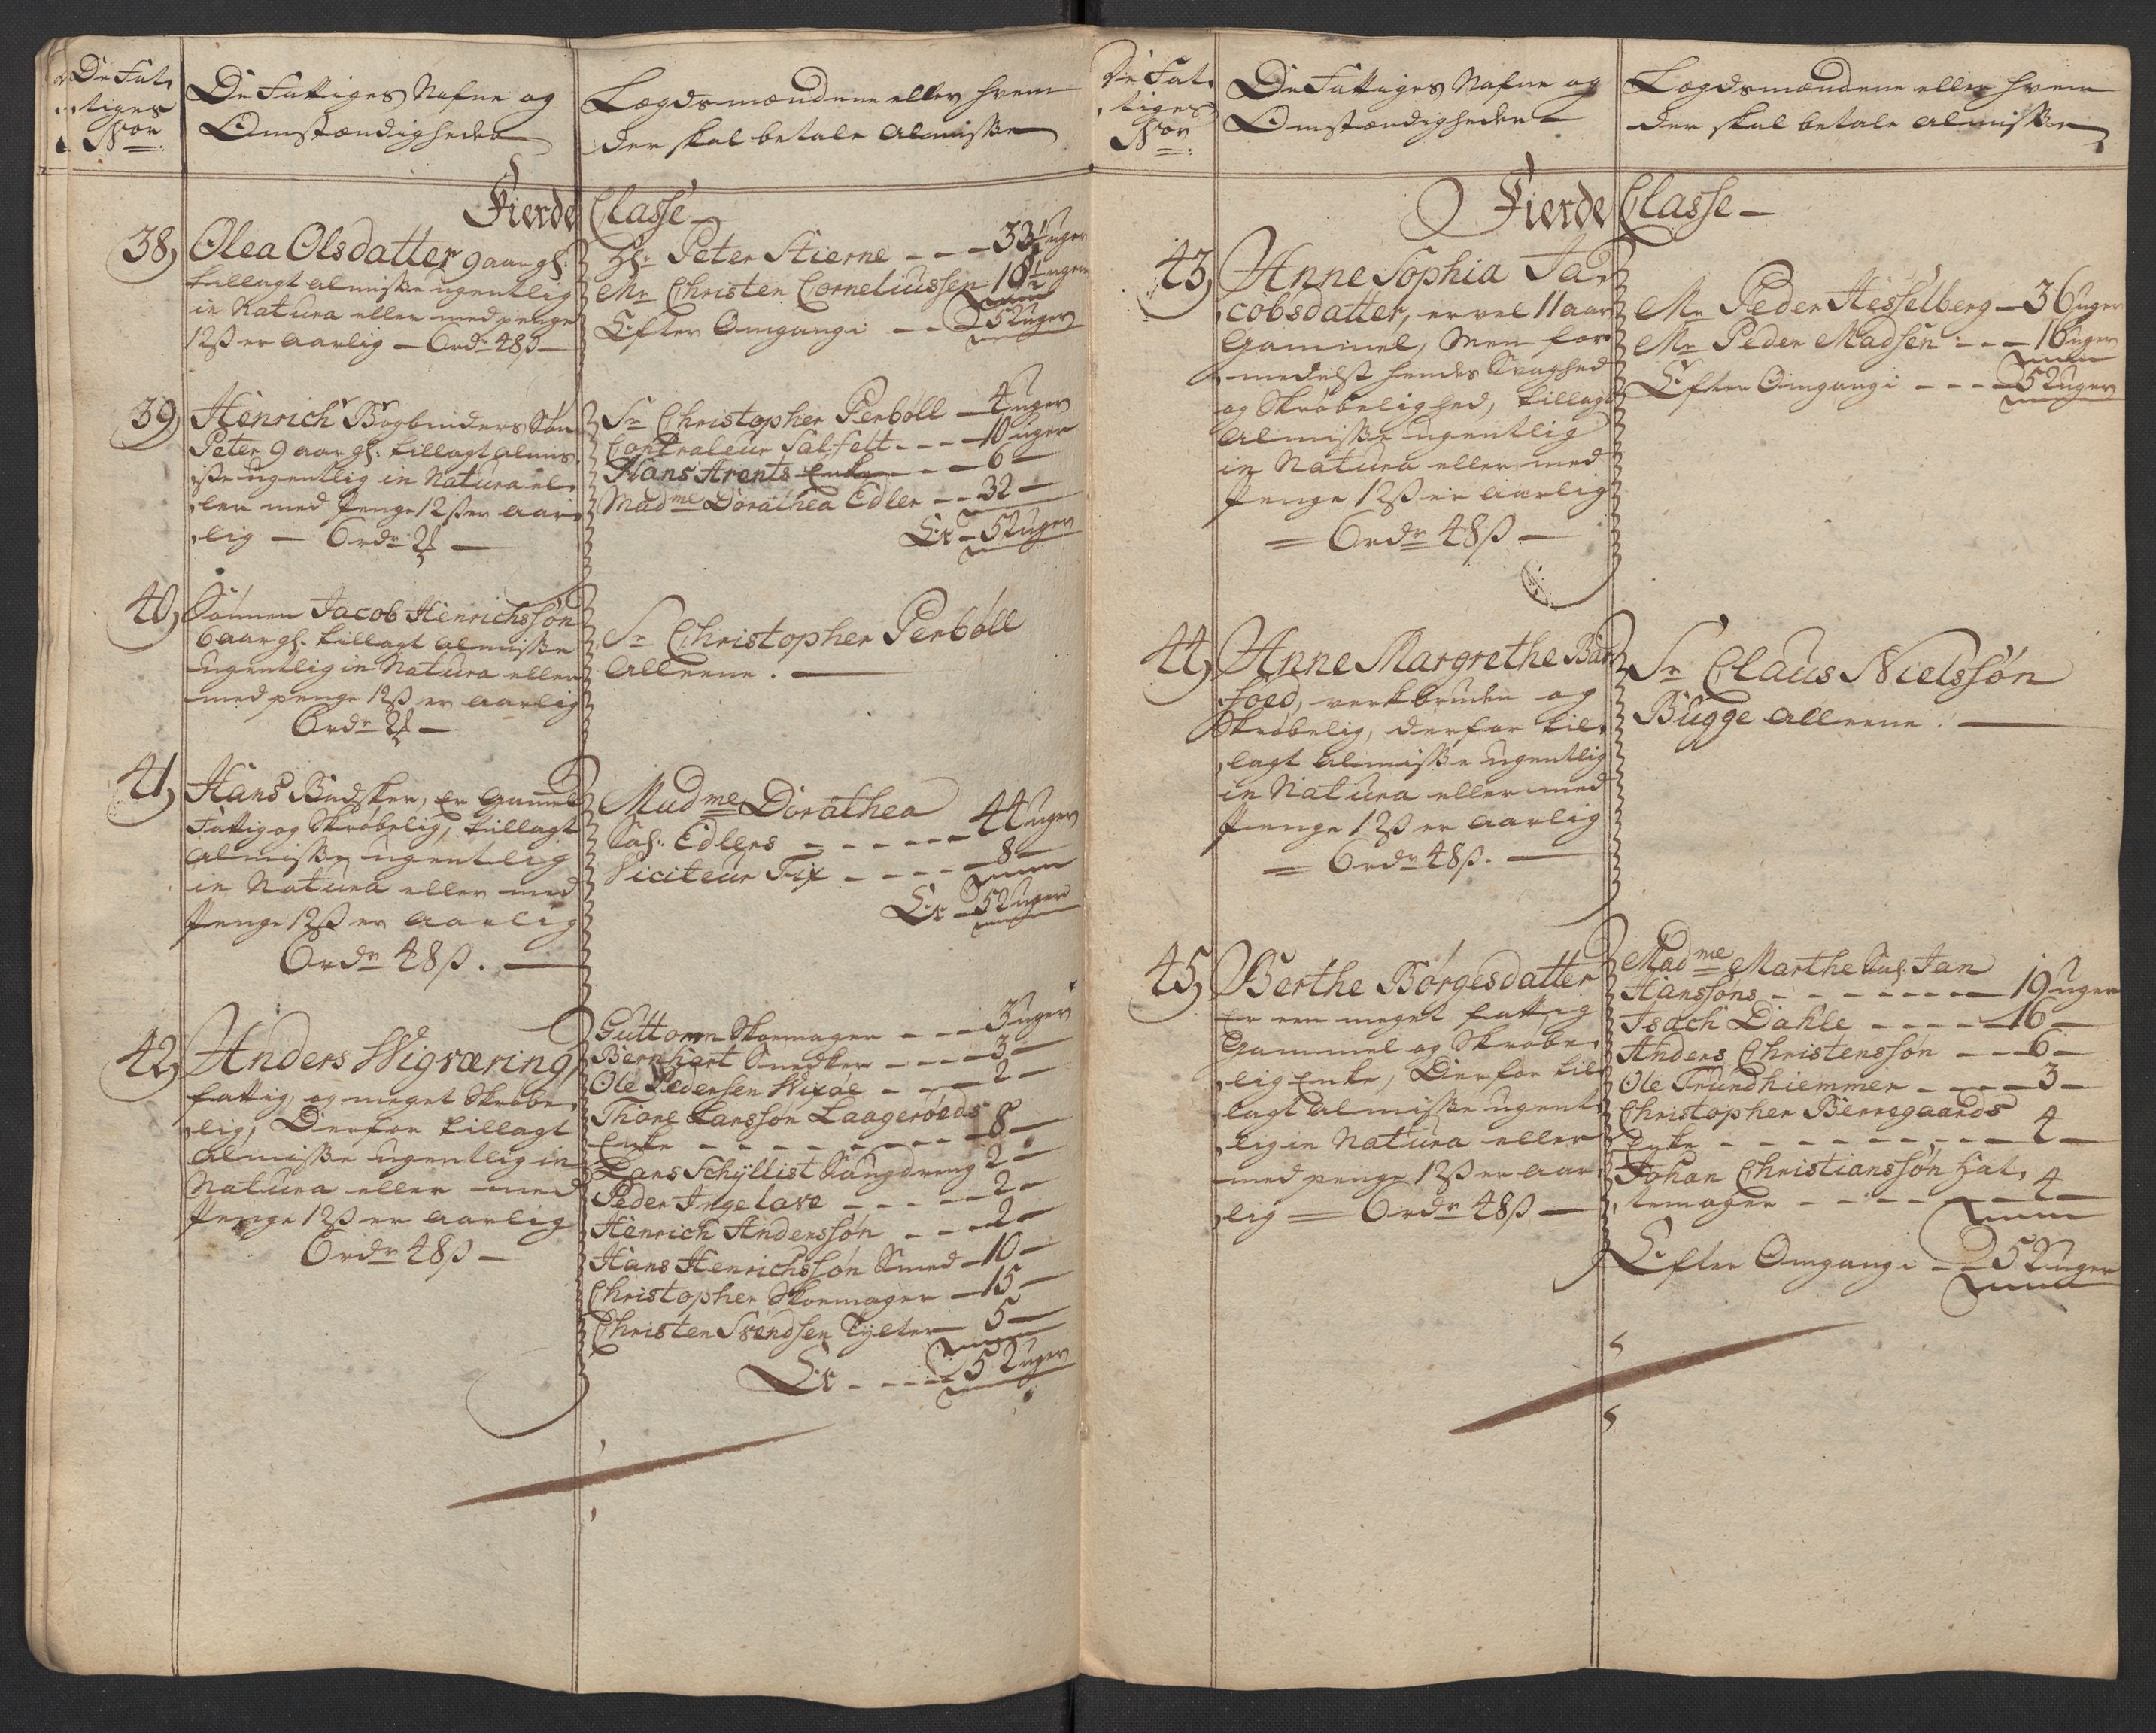 De Fat,
,tiges
Nor
De Fattiges Nafne og
Omstændigheder
Lægdsmændene eller hvem
der skal betale Almisse
Fierde Classe
38, Olea Olsdatter 9 aar gl:
tillagt almisse ugentlig
in Natura eller med penge
12ß er aarlig — 6 rdr 48ß —
Hr. Peter Stierne - - - 33½ uger
Mr Christen Corneliussen 18½ uger
Efter Omgang i - - 52 uger
39, Henrich Bogbinders Søn
Peter 9 aar gl: tillagt almis,
,se ugentlig in Natura el,
,ler med Penge 12ß er aar,
,lig — 6 rdr 2 —
Sr Christopher Perbøll — 4 uger
Contraleur Salfelt - - - 10 uger
Hans Arents Enke - - 6 —
Madme Dorathea Edler - - 32 —
Er - 52 uger
40, Sønnen Jacob Henrichssøn
6 aar gl: tillagt almisse
ugentlig in Natura eller
med penge 12ß er aarlig
6 rdr 2 —
Sr Christopher Perbøll
alleene . —
41, Hans Bødsker, er Gammel
Fattig og Skrøbelig, tillagt
almisse ugentlig
in Natura eller med
Penge 12ß er aarlig
6 rdr 48ß . —
Madme Dorathea
Sal: Edlers - - - - - 44 uger
Viciteur Fix - - - - 8 —
Er - 52 uger
42, Anders Wigværing,
fattig, og meget Skrøbe,
,lig, Derfor tillagt
almisse ugentlig in
Natura eller med
Penge 12ß er aarlig
6 rdr 48ß —
Guttorm Skoemager - - - 3 uger
Bernhart Snedker - - - - 3 —
Ole Pedersen Wixøe - - - 2 —
Thore Larssøn Laagerøeds
Enke - - - - - - - - 8 —
Lars Schÿllist Laugdreng 2 —
Peder Ingelave - - - - 2 —
Henrich Anderssøn - - - 2 —
Hans Henrichssøn Smed — 10 —
Christopher Skoemager — 15 —
Christen Svendsen — 5 —
Er - - - - 52 uger
De Fat,
,tiges
Nor
De Fattiges Nafne og
Omstændigheder
Lægdsmændene eller hvem
der skal betale almisse
Fierde Classe —
43, Anne Sophia Ja,
,cobsdatter, er vel 11 aar
Gammel, men for,
,medelst hendes Svaghed
og Skrøbelighed, tillagt
Almisse ugentlig
in Natura eller med
Penge 12ß er aarlig
= 6 rdr 48ß —
Mr Peder Hesselberg — 36 uger
Mr Peder Madsen - - - 16 uger
Efter Omgang i - - - 52 uger
44, Anne Margrethe Bar
foed, verkbruden og
Skrøbelig, derfor til,
,lagt almisse ugentlig
in Natura eller med
Penge 12ß er aarlig
= 6 rdr 48ß. —
Sr Claus Nielssøn
Bugge alleene . —
45, Berthe Børgesdatter
Er een meget fattig
Gammel og Skrøbe,
,lig Enke, Derfor til
lagt almisse ugent,
,lig in Natura eller
med penge 12ß er aar,
,lig = 6 rdr 48ß —
Madme Marthe Sal: Jan
Hanssøns - - - - - - - 19 uger
Isach Dahle - - - - 16 —
Anders Christenssøn - - - 6 —
Ole Trundhiemmer - - - - 3 —
Christopher Berregaards
Enke - - - - - - - - 4 —
Johan Christianssøn Hat,
,temager - - - - - 4 —
Efter Omgang i - - 52 uger